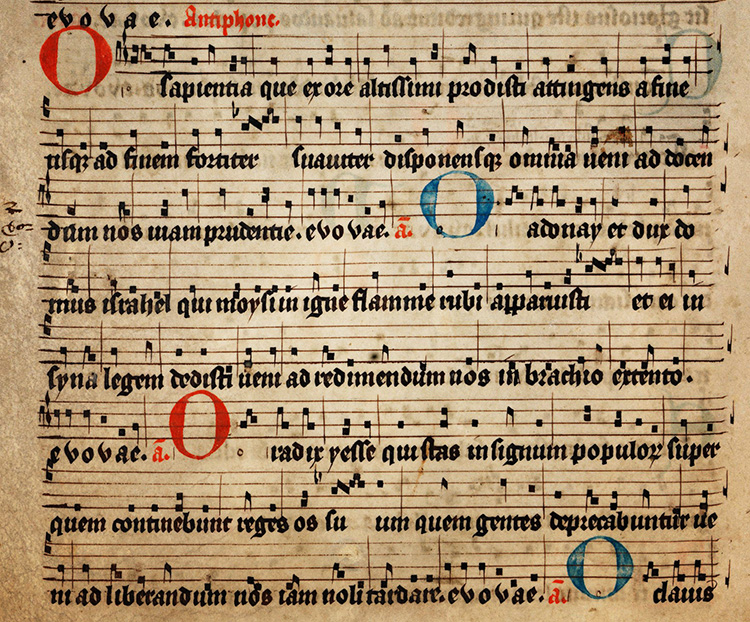 evovae. Antiphone.
O sapientia que ex ore altissimi prodisti attingens a fine
usqz ad finem fortiter suauiter disponensqz omnia ueni ad docen
dum nos uiam prudentie. evovae. a. O adonay et dux do
mus israhel qui moysi in igne flamme rubi apparuisti et ei in
syna legem dedisti ueni ad redimendum nos in brachio extento.
evovae. a. O radix yesse qui stas in signum populoꝝ super
quem continebunt reges os suum quem gentes deprecabuntur ue
ni ad liberandum nos iam noli tardare. evovae. a. O clauis